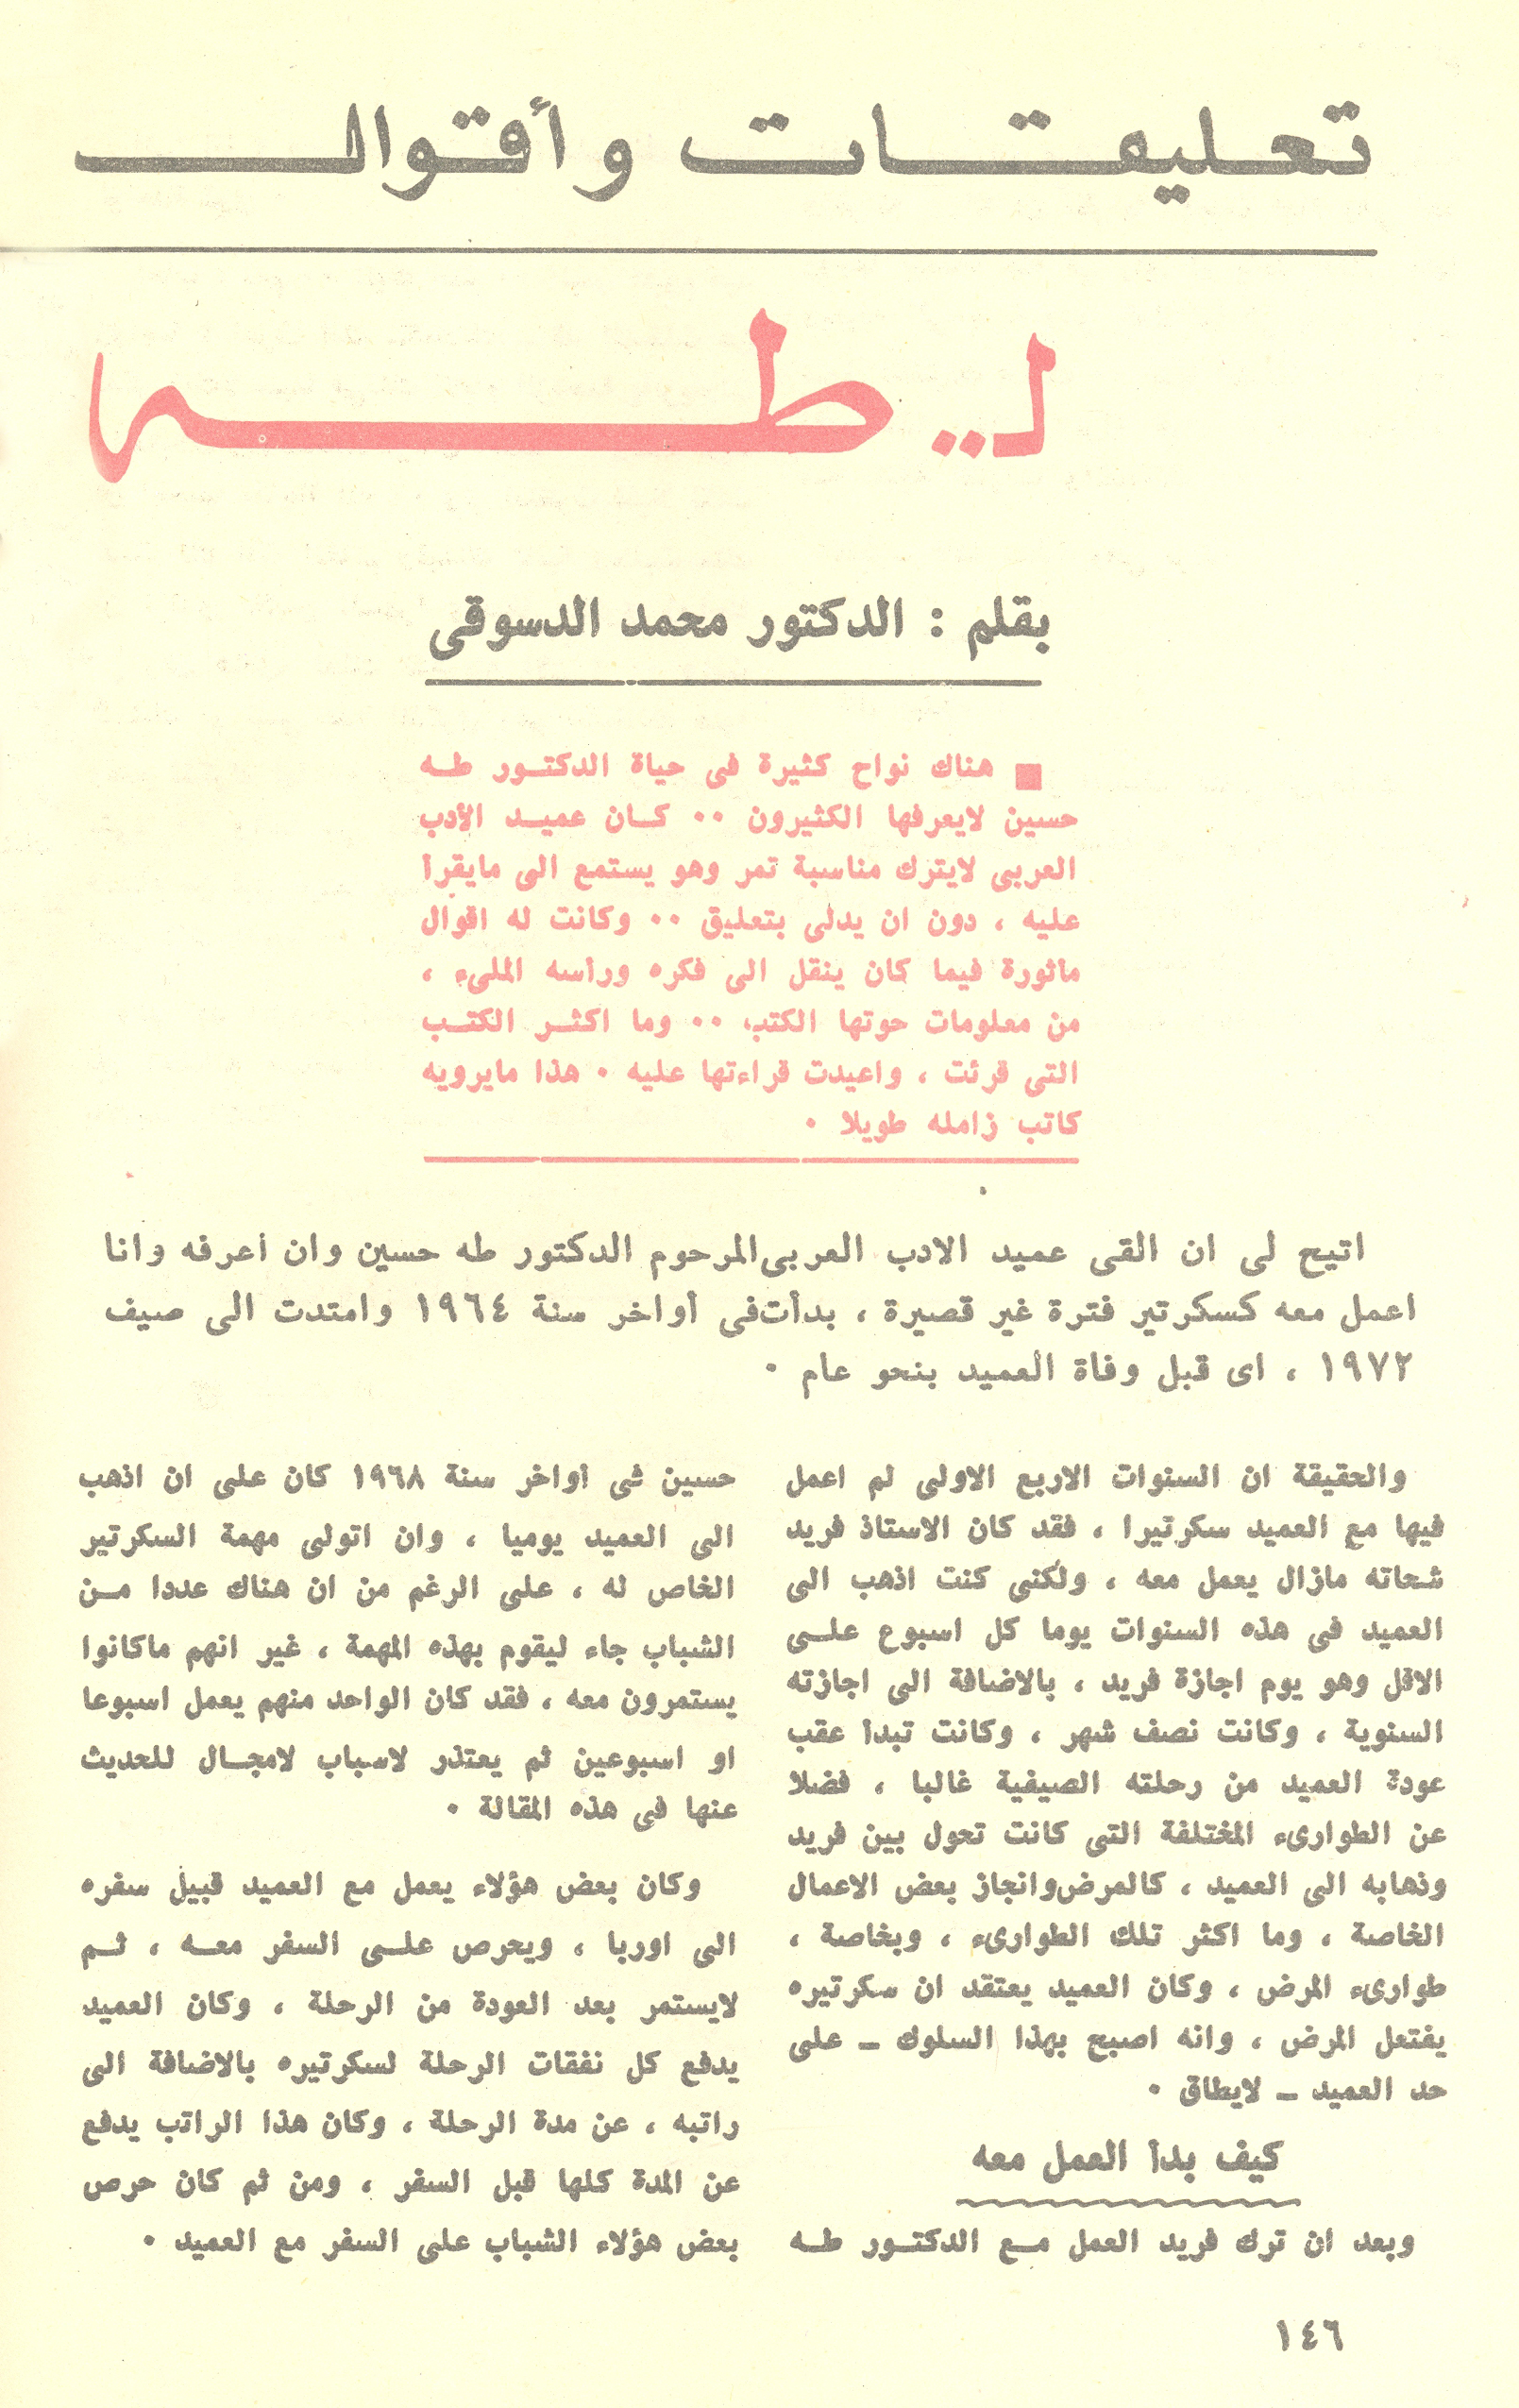 تعليقات وأقوال
لـ.. طه
بقلم : الدكتور محمد الدسوقى
■ هناك نواح كثيرة فى حياة الدكتور طه
حسين لايعرفها الكثيرون ٠٠ كان عميد الأدب
العربى لايترك مناسبة تمر وهو يستمع الى مايقرأ
عليه ، دون ان يدلى بتعليق ٠٠ وكانت له اقوال
مأثورة فيما كان ينقل الى فكره ورأسه الملىء ،
من معلومات حوتها الكتب ٠٠ وما اكثر الكتب
التى قرئت ، واعيدت قراءتها عليه ٠ هذا مايرويه
كاتب زامله طويلا ٠
اتيح لى ان القى عميد الادب العربى المرحوم الدكتور طه حسين وان أعرفه وانا
اعمل معه كسكرتير فترة غير قصيرة ، بدأت فى أواخر سنة ١٩٦٤ وامتدت الى صيف
١٩٧٢ ، اى قبل وفاة العميد بنحو عام ٠
والحقيقة ان السنوات الاربع الاولى لم اعمل
فيها مع العميد سكرتيرا ، فقد كان الاستاذ فريد
شحاته مازال يعمل معه ، ولكنى كنت اذهب الى
العميد فى هذه السنوات يوما كل اسبوع على
الاقل وهو يوم اجازة فريد ، بالاضافة الى اجازته
السنوية ، وكانت نصف شهر ، وكانت تبدأ عقب
عودة العميد من رحلته الصيفية غالبا ، فضلا
عن الطوارىء المختلفة التى كانت تحول بين فريد
وذهابه الى العميد ، كالمرض وانجاز بعض الاعمال
الخاصة ، وما اكثر تلك الطوارىء ، وبخاصة ،
طوارىء المرض ، وكان العميد يعتقد ان سكرتيره
يفتعل المرض ، وانه اصبح بهذا السلوك ـ على
حد العميد ـ لايطاق ٠
كيف بدأ العمل معه
وبعد ان ترك فريد العمل مع الدكتور طه
حسين فى أواخر سنة ١٩٦٨ كان على ان اذهب
الى العميد يوميا ، وان اتولى مهمة السكرتير
الخاص له ، على الرغم من ان هناك عددا من
الشباب جاء ليقوم بهذه المهمة ، غير انهم ماكانوا
يستمرون معه ، فقد كان الواحد منهم يعمل اسبوعا
او اسبوعين ثم يعتذر لاسباب لامجال للحديث
عنها فى هذه المقالة ٠
وكان بعض هؤلاء يعمل مع العميد قبيل سفره
الى اوربا ، ويحرص على السفر معه ، ثم
لايستمر بعد العودة من الرحلة ، وكان العميد
يدفع كل نفقات الرحلة لسكرتيره بالاضافة الى
راتبه ، عن مدة الرحلة ، وكان هذا الراتب يدفع
عن المدة كلها قبل السفر ، ومن ثم كان حرص
بعض هؤلاء الشباب على السفر مع العميد ٠
١٤٦